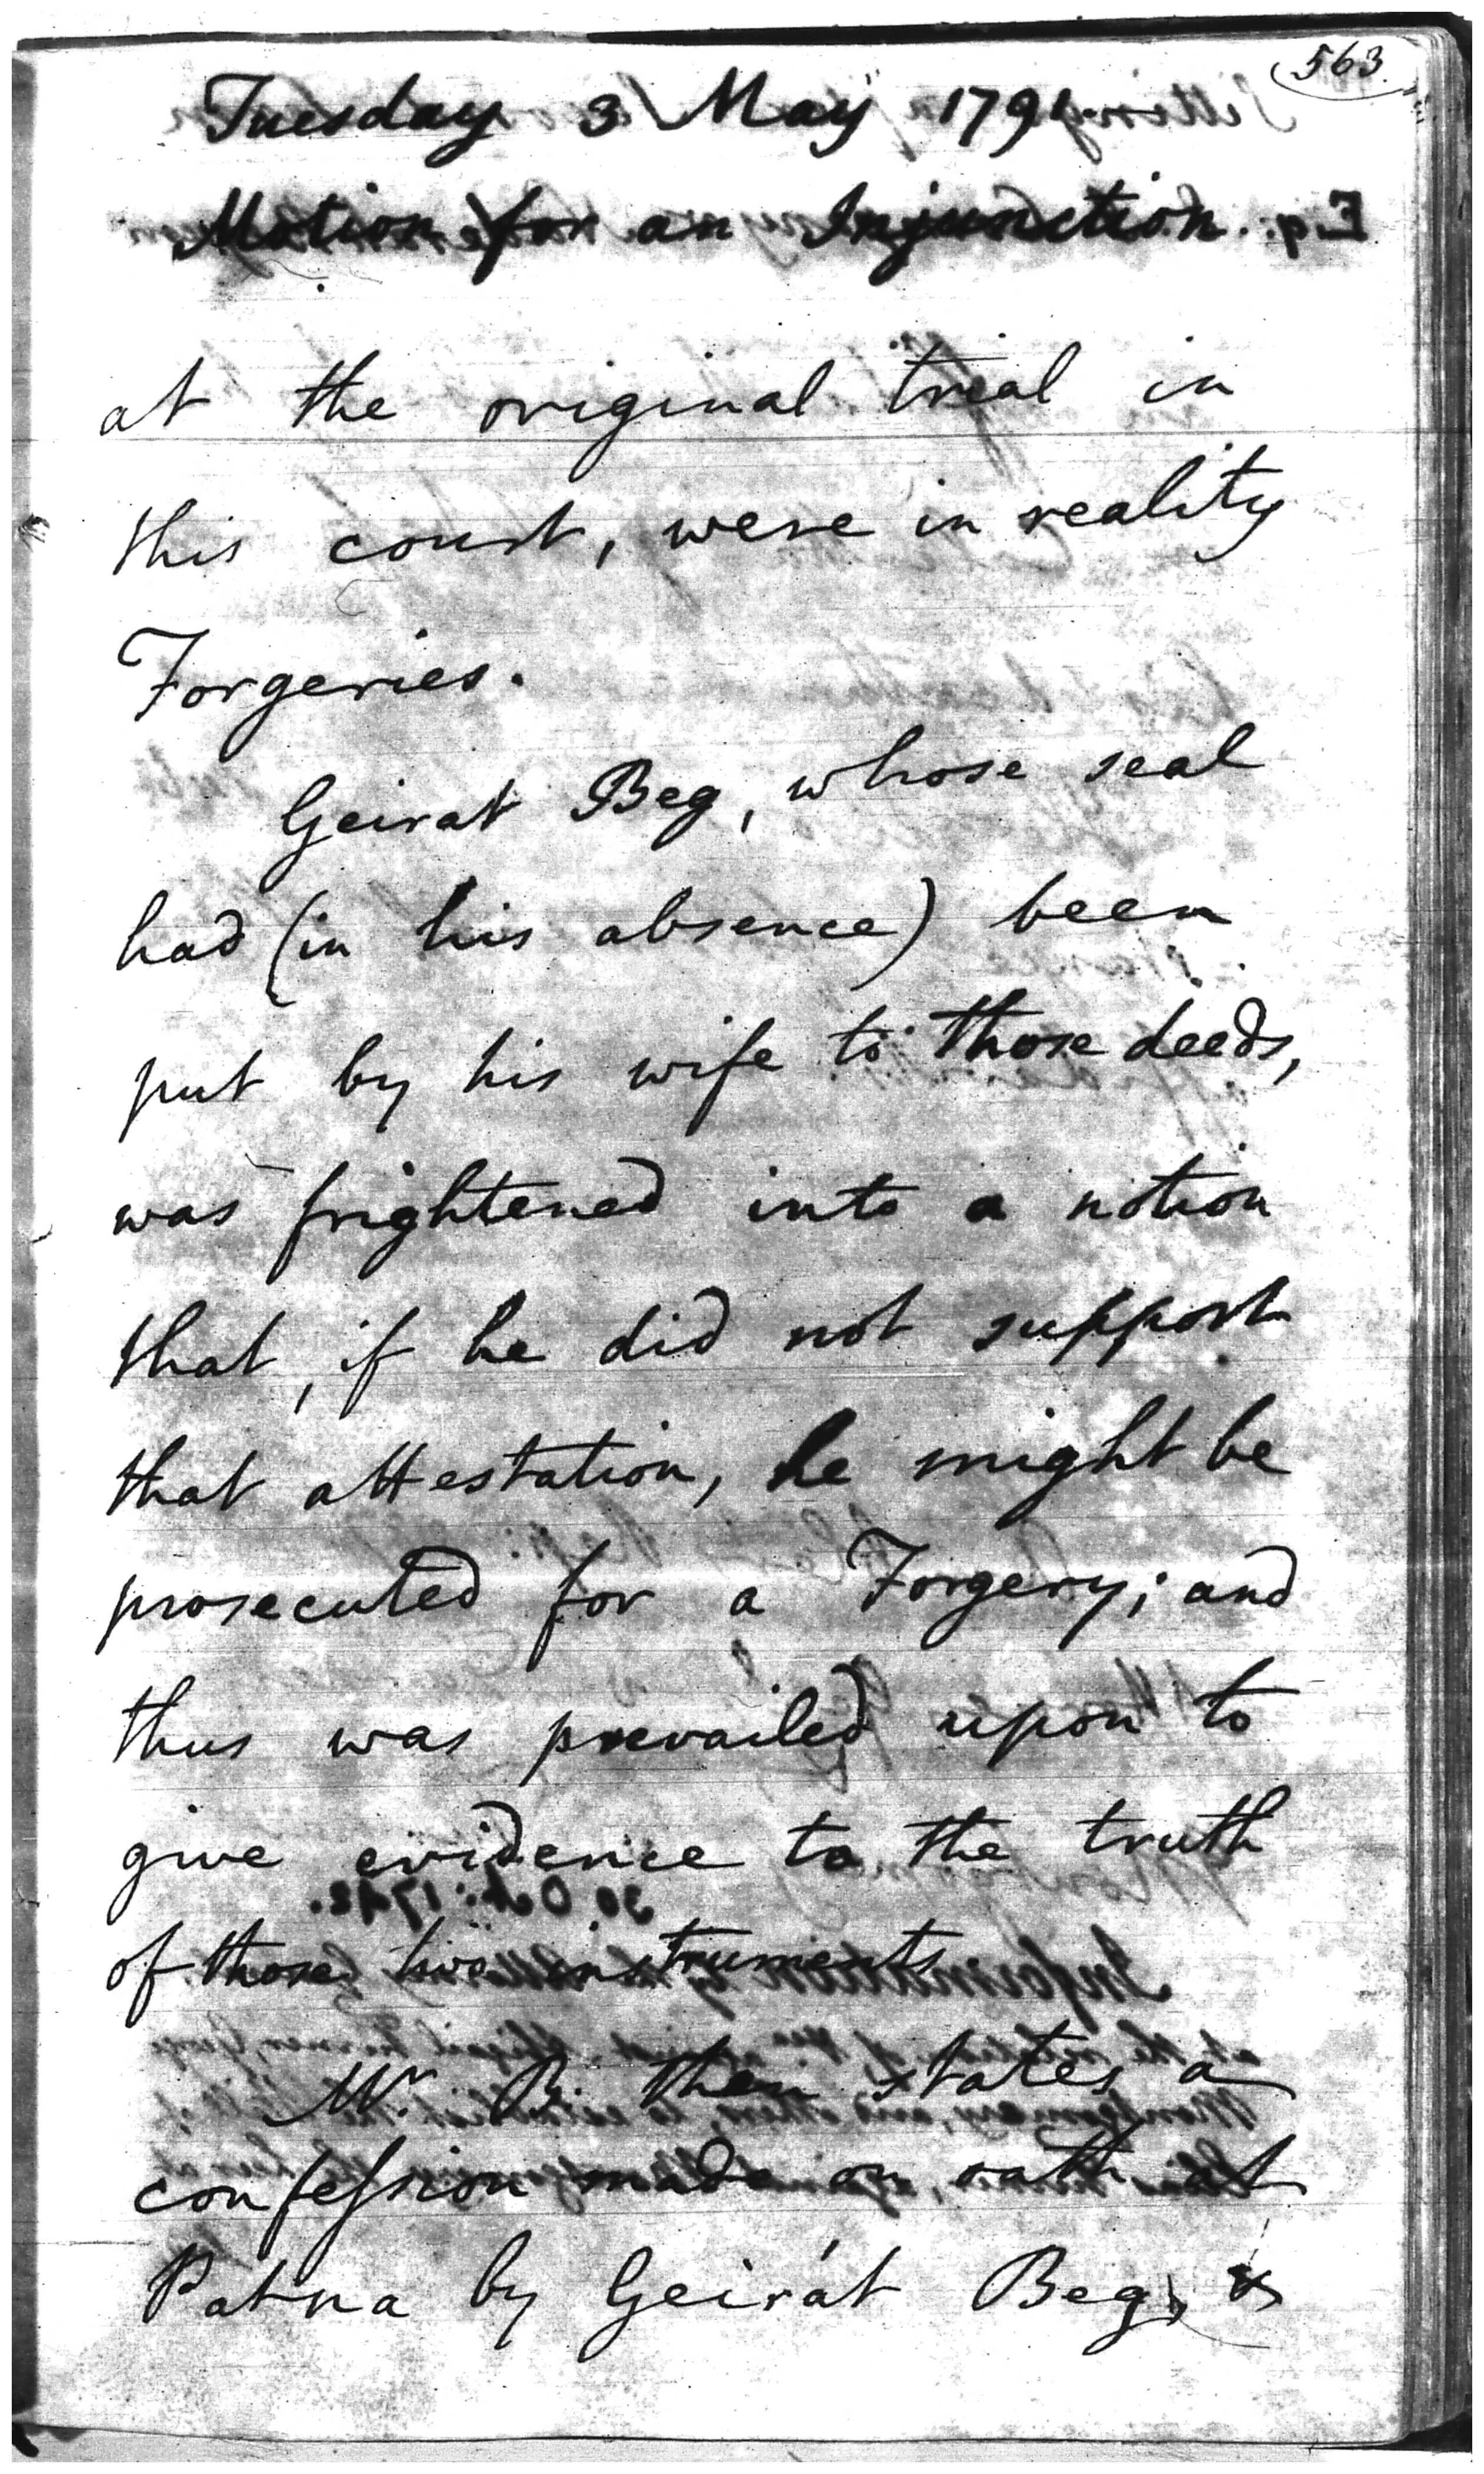 563
Tuesday 3 May 1791.
Motion for an Injunction.
at the original trial in
this court, were in reality
Forgeries.
Geirat Beg, whose seal
had (in his absence) been
put by his wife to those deeds,
was frightened into a notion
that, if he did not support
that attestation, he might be
prosecuted for a Forgery; and
thus was prevailed upon to
give evidence to the truth
of those two instruments
Mr. B. then states a
confession made on oath at
Patna by Geirát Beg, &